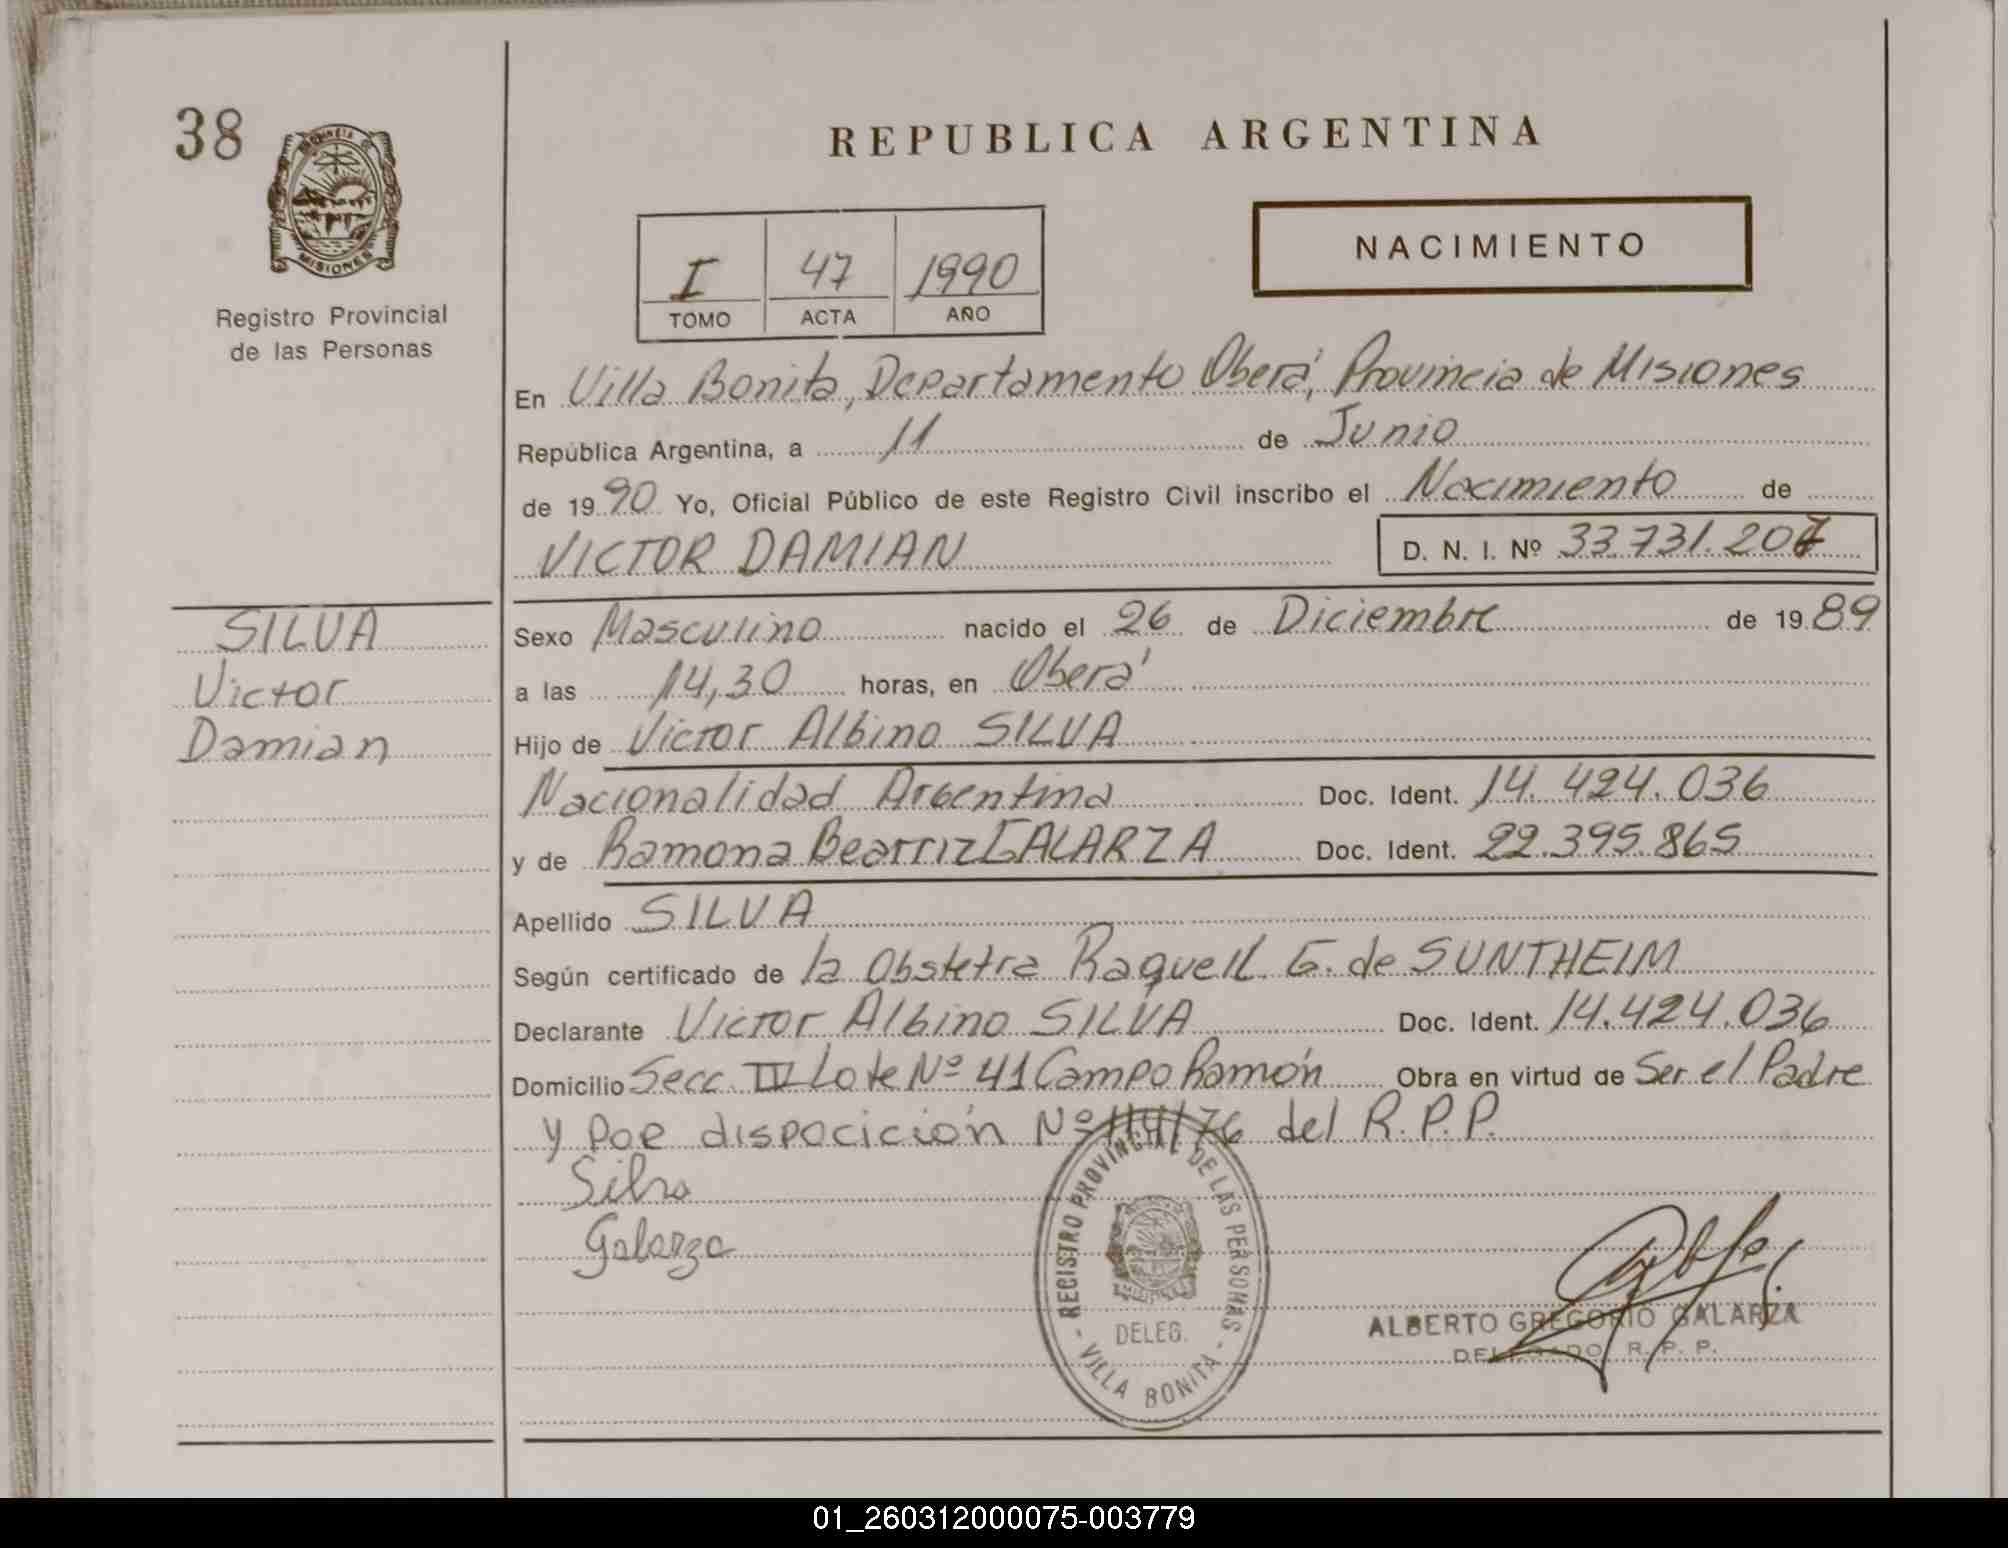 38
PROVINCIA
MISIONES
Registro Provincial
de las Personas
REPUBLICA ARGENTINA
I 47 1990
TOMO ACTA AÑO
NACIMIENTO
En Villa Bonita, Departamento Oberá, Provincia de Misiones
República Argentina, a 11 de Junio
de 1990 Yo, Oficial Público de este Registro Civil inscribo el Nacimiento de
VICTOR DAMIAN D. N. I. Nº 33.731.207
SILVA
Victor
Damian
Sexo Masculino nacido el 26 de Diciembre de 1989
a las 14,30 horas, en Oberá
Hijo de Victor Albino SILVA
Nacionalidad Argentina Doc. Ident. 14.424.036
y de Ramona Beatriz GALARZA Doc. Ident. 22.395.865
Apellido SILVA
Según certificado de la Obstetra Raquell G. de SUNTHEIM
Declarante Victor Albino SILVA Doc. Ident. 14.424.036
Domicilio Secc. IV Lote Nº 41 Campo Ramón Obra en virtud de Ser el Padre
y por dispocición Nº 114/76 del R.P.P.
Silva
Galarza
REGISTRO PROVINCIAL DE LAS PERSONAS
DELEG.
- VILLA BONITA -
ALBERTO GREGORIO GALARZA
DELEGADO R. P. P.
01_260312000075-003779